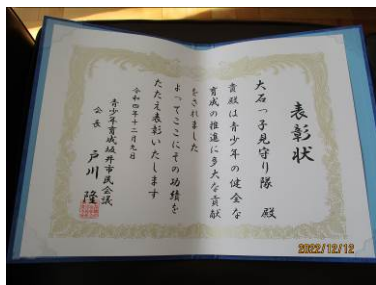 表彰状
大石っ子見守り隊 殿
貴殿は青少年の健全な
育成の推進に多大な貢献
をされました
よってここにその功績を
たたえ表彰いたします
令和四年十二月九日
青少年育成福井市民会議
会長 戸川 隆
2022/12/12